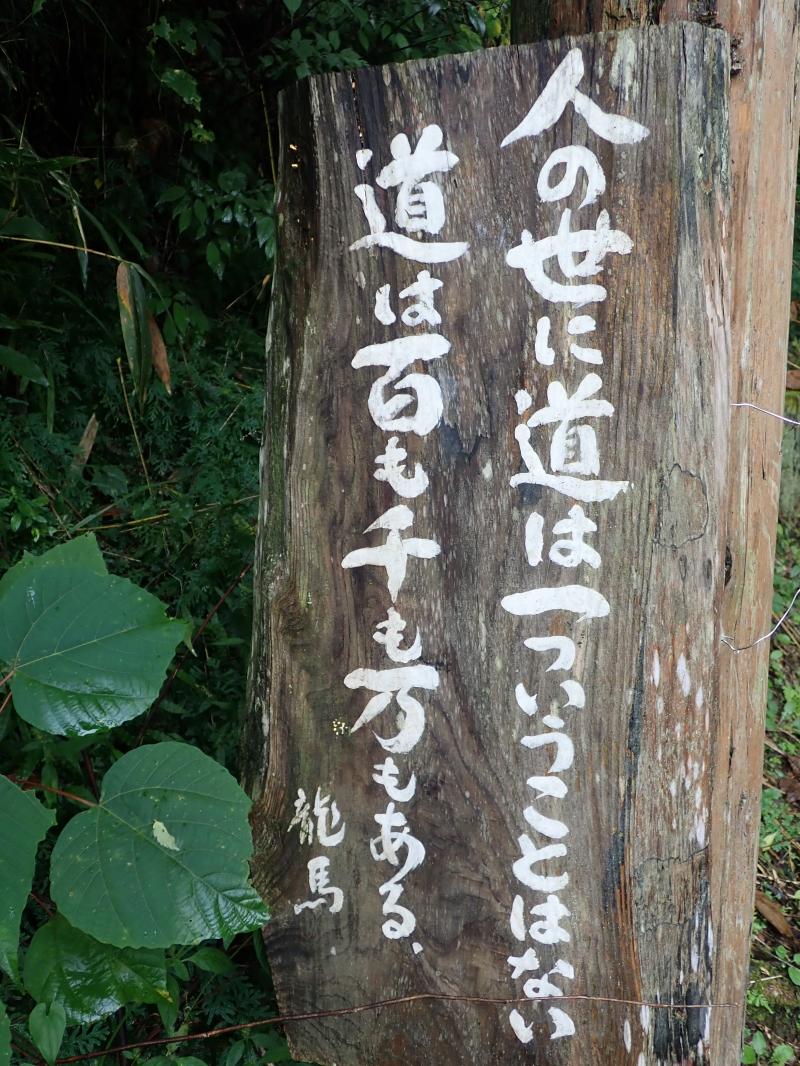 人の世に道は一つということはない
道は百も千も万もある、
龍馬